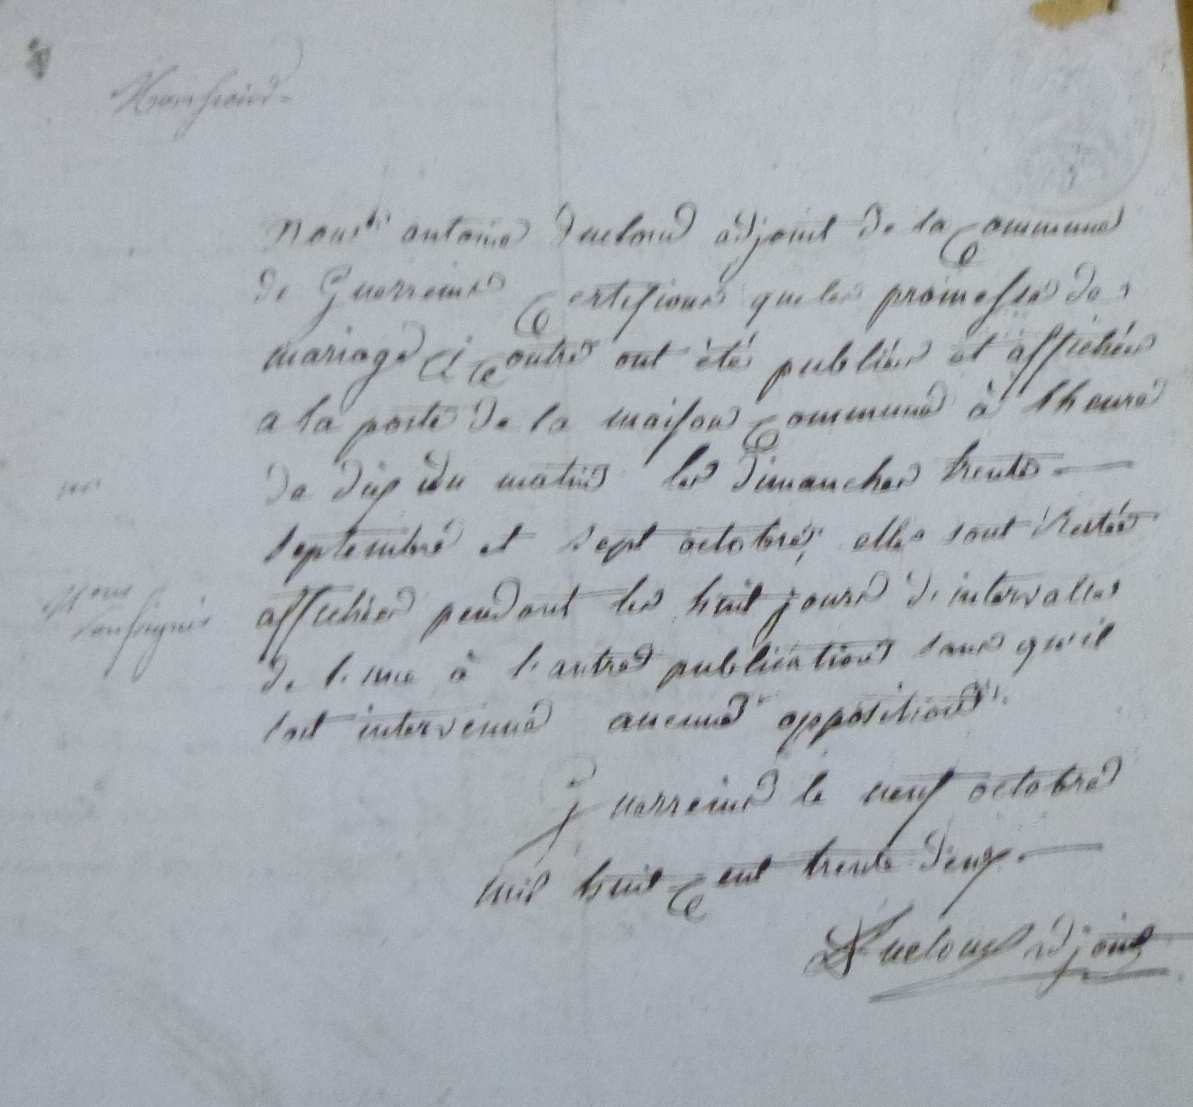 Nous antoine Ducloux adjoint de la Commune
de Guerreins Certifions que les promesses de
mariage Ci Contre ont été publiées et affichées
a la porte de la maison Commune à lheure
de dix du matin les dimanches trente
septembre et sept octobre, elles sont restée
affichées pendant les huit jours d'intervalles
de l'une à l'autre publication sans qu'il
soit intervenue aucune opposition.
Guerreins le neuf octobre
mil huit Cent trente deux.
adjoint
Nous
soussignés